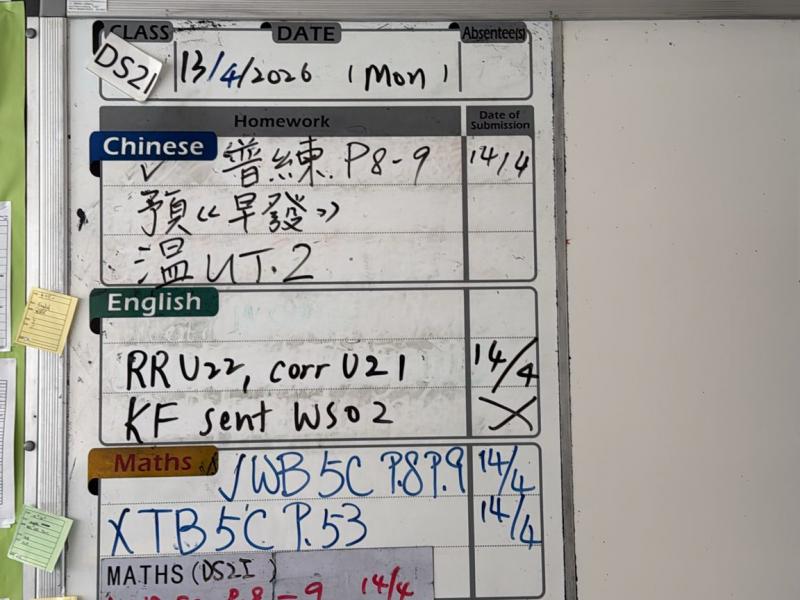 CLASS DATE Absentee(s)
DS2I 13/4/2026 (Mon)
Homework Date of Submission
Chinese
✓ 普練 P8-9 14/4
預《早發》
溫 UT.2
English
RR U22, corr U21 14/4
KF sent WS02 X
Maths
√WB 5C P.8 P.9 14/4
X TB 5C P.53 14/4
MATHS (DS2I)
P.8-9 14/4